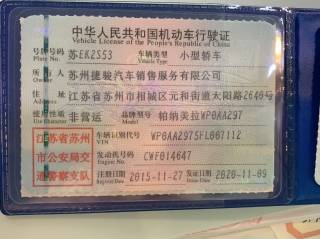 中华人民共和国机动车行驶证
Vehicle License of the People's Republic of China
号牌号码 Plate No. 苏EK2S53 车辆类型 Vehicle Type 小型轿车
所有人 Owner 苏州捷骏汽车销售服务有限公司
住址 Address 江苏省苏州市相城区元和街道太阳路2640号
使用性质 Use Character 非营运 品牌型号 Model 帕纳美拉WP0AA297
江苏省苏州市公安局交通警察支队
车辆识别代号 VIN WP0AA2975FL007112
发动机号码 Engine No. CWF014647
注册日期 Register Date 2015-11-27 发证日期 Issue Date 2020-11-09